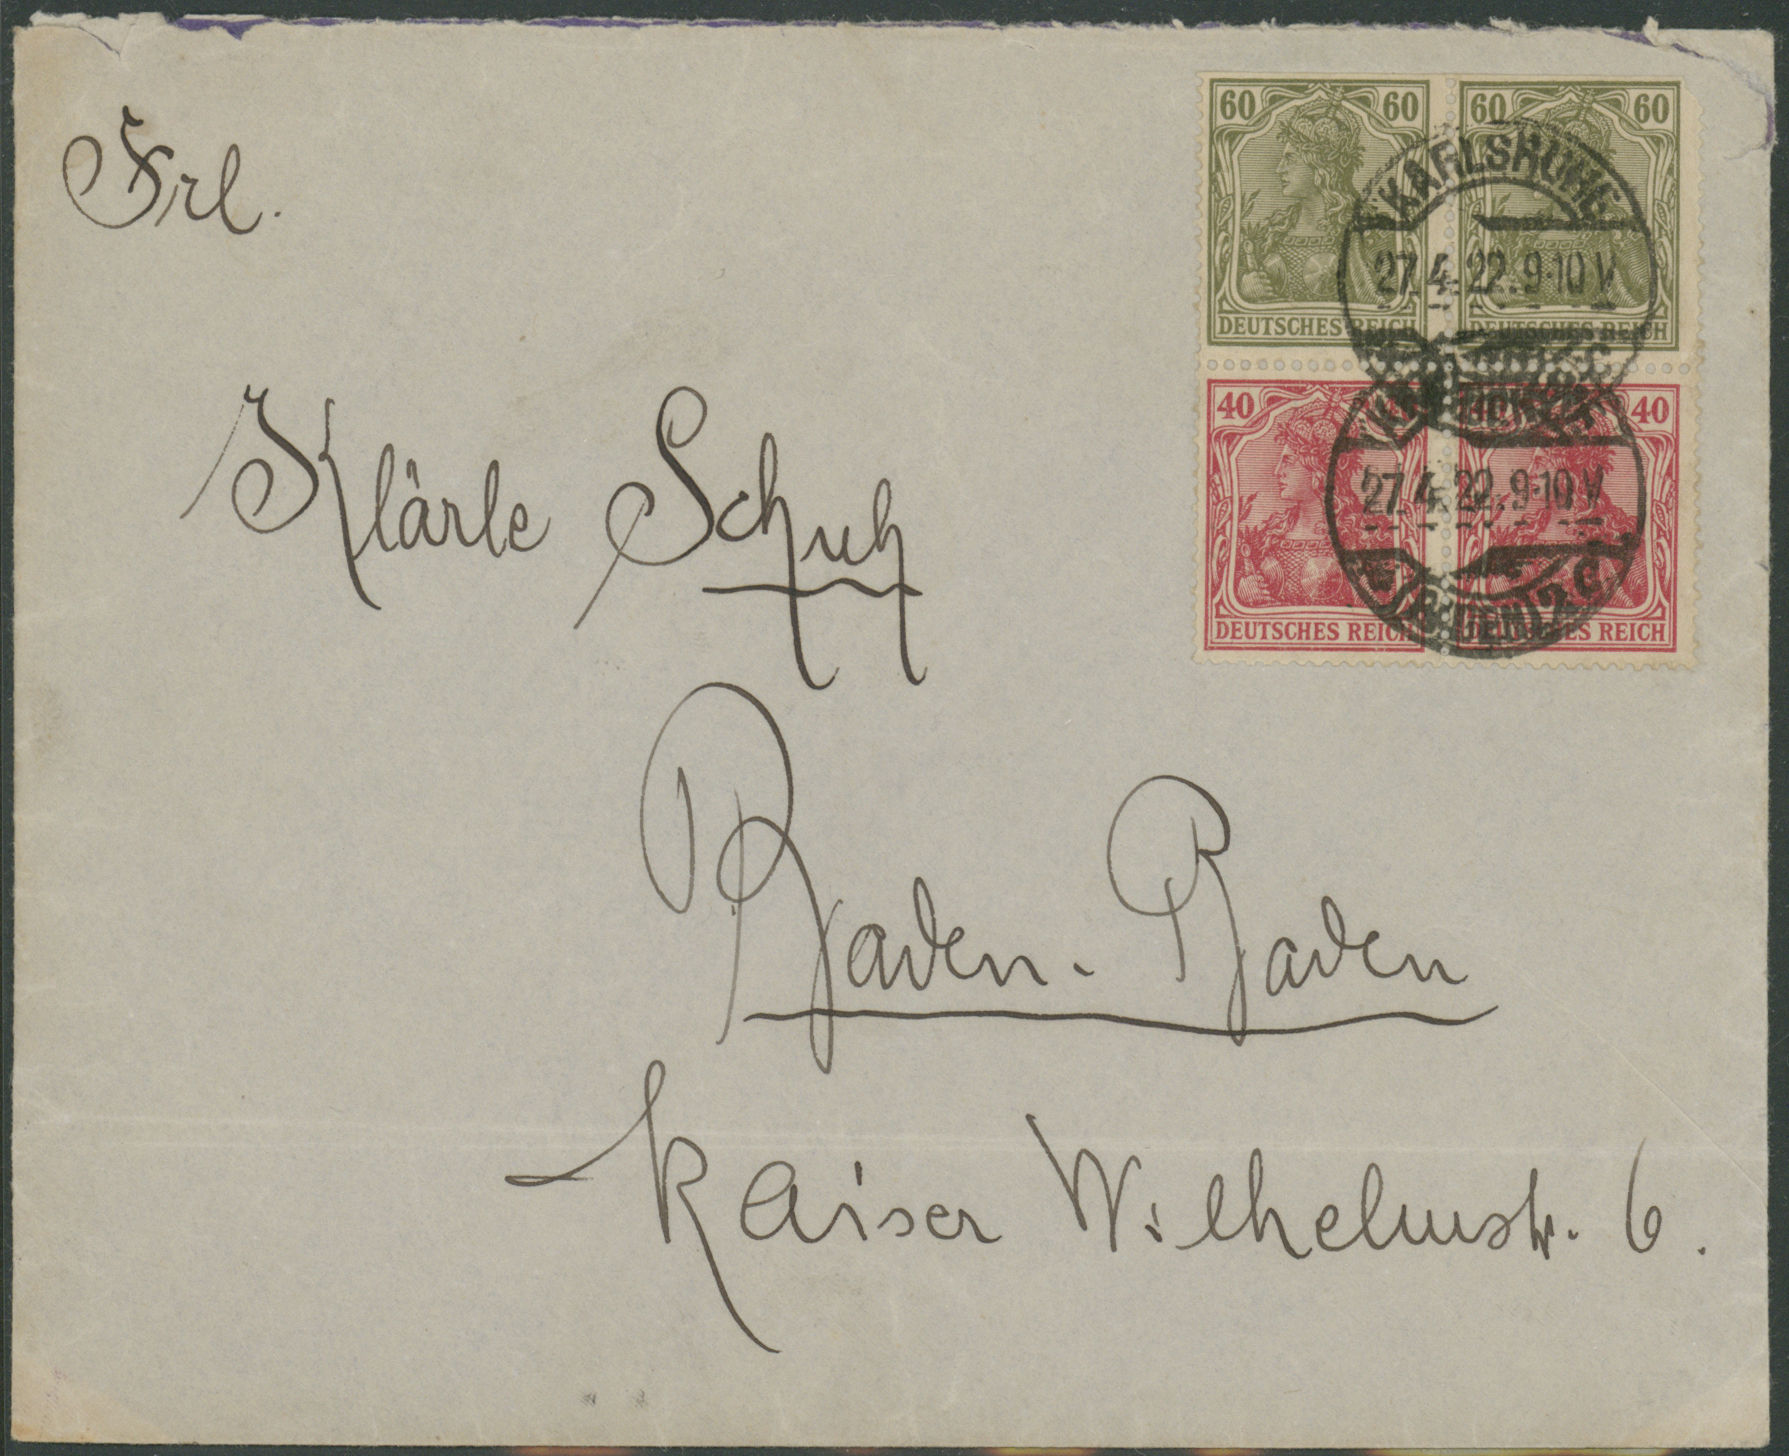 Frl.
Klärle Schuh
Baden-Baden
Kaiser Wilhelmstr. 6.
60 60 60 60
DEUTSCHES REICH DEUTSCHES REICH
40 40 40
DEUTSCHES REICH DEUTSCHES REICH
KARLSRUHE
27.4.22.9-10 V
27.4.22.9-10 V
(BADEN) 2 c.